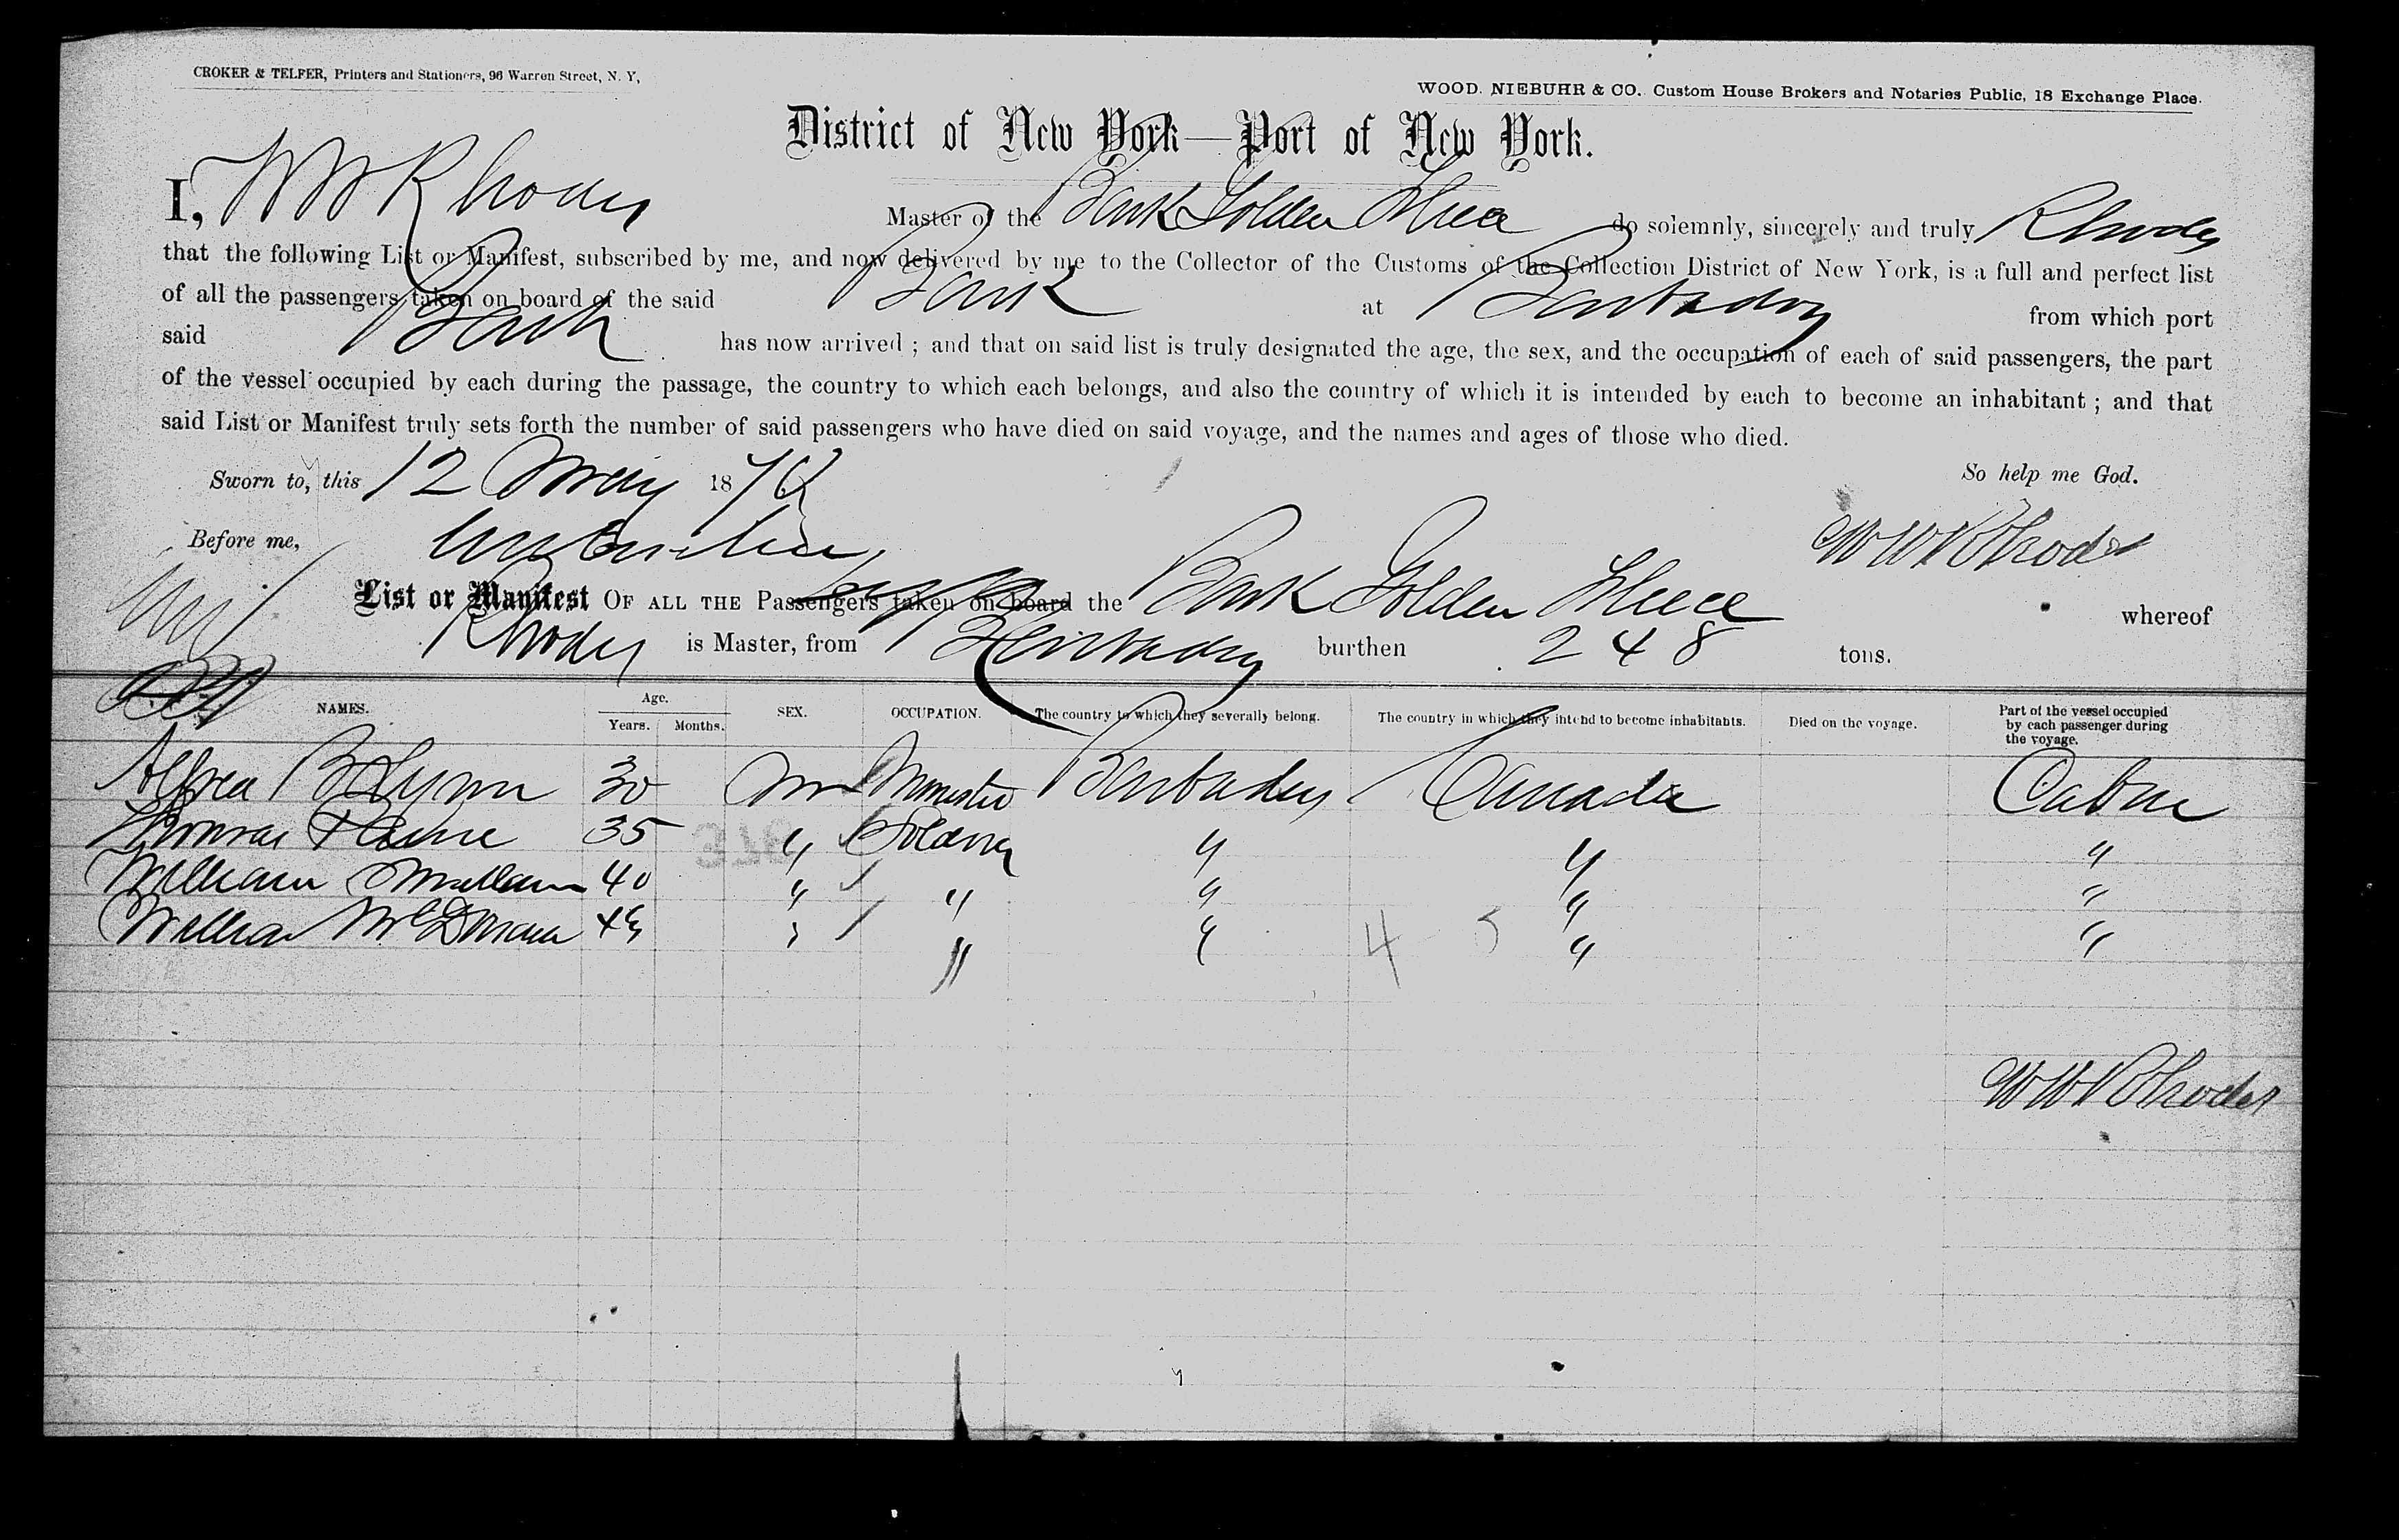 CROKER & TELFER, Printers and Stationers, 96 Warren Street, N. Y,
WOOD. NIEBUHR & CO. Custom House Brokers and Notaries Public, 18 Exchange Place.
District of New York—Port of New York.
I, W W Rhodes Master of the Bark Golden Fleece do solemnly, sincerely and truly Rhodes
that the following List or Manifest, subscribed by me, and now delivered by me to the Collector of the Customs of the Collection District of New York, is a full and perfect list
of all the passengers taken on board of the said Bark at Barbados from which port
said Bark has now arrived ; and that on said list is truly designated the age, the sex, and the occupation of each of said passengers, the part
of the vessel occupied by each during the passage, the country to which each belongs, and also the country of which it is intended by each to become an inhabitant ; and that
said List or Manifest truly sets forth the number of said passengers who have died on said voyage, and the names and ages of those who died.
Sworn to, this 12 May 18 So help me God.
Before me, W W Rhodes
List or Manifest OF ALL THE Passengers taken on board the Bark Golden Fleece whereof
Rhodes is Master, from Barbados burthen 248 tons.
NAMES. Age. Years. Months. SEX. OCCUPATION. The country to which they severally belong. The country in which they intend to become inhabitants. Died on the voyage. Part of the vessel occupied by each passenger during the voyage.
Alfred B Lynn 30 M Minister Barbados Canada Cabin
Thomas 35 " " " "
William 40 " " " " "
William " " " " "
4 5
W W Rhodes